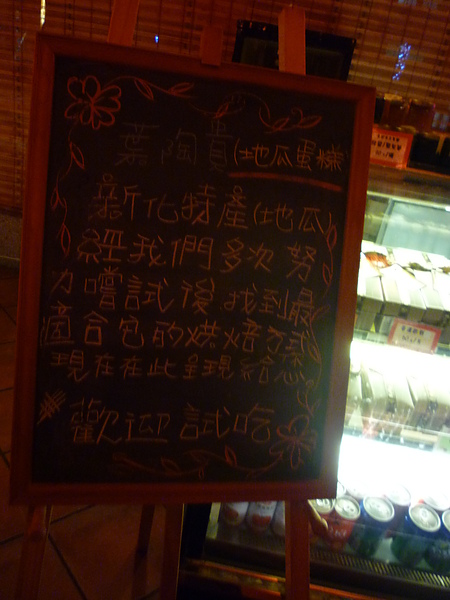 葉陶貴(地瓜蛋糕
新化特產(地瓜)
經我們多次努
力嚐試後找到最
適合包的烘焙方式
現在在此呈現給您
歡迎試吃